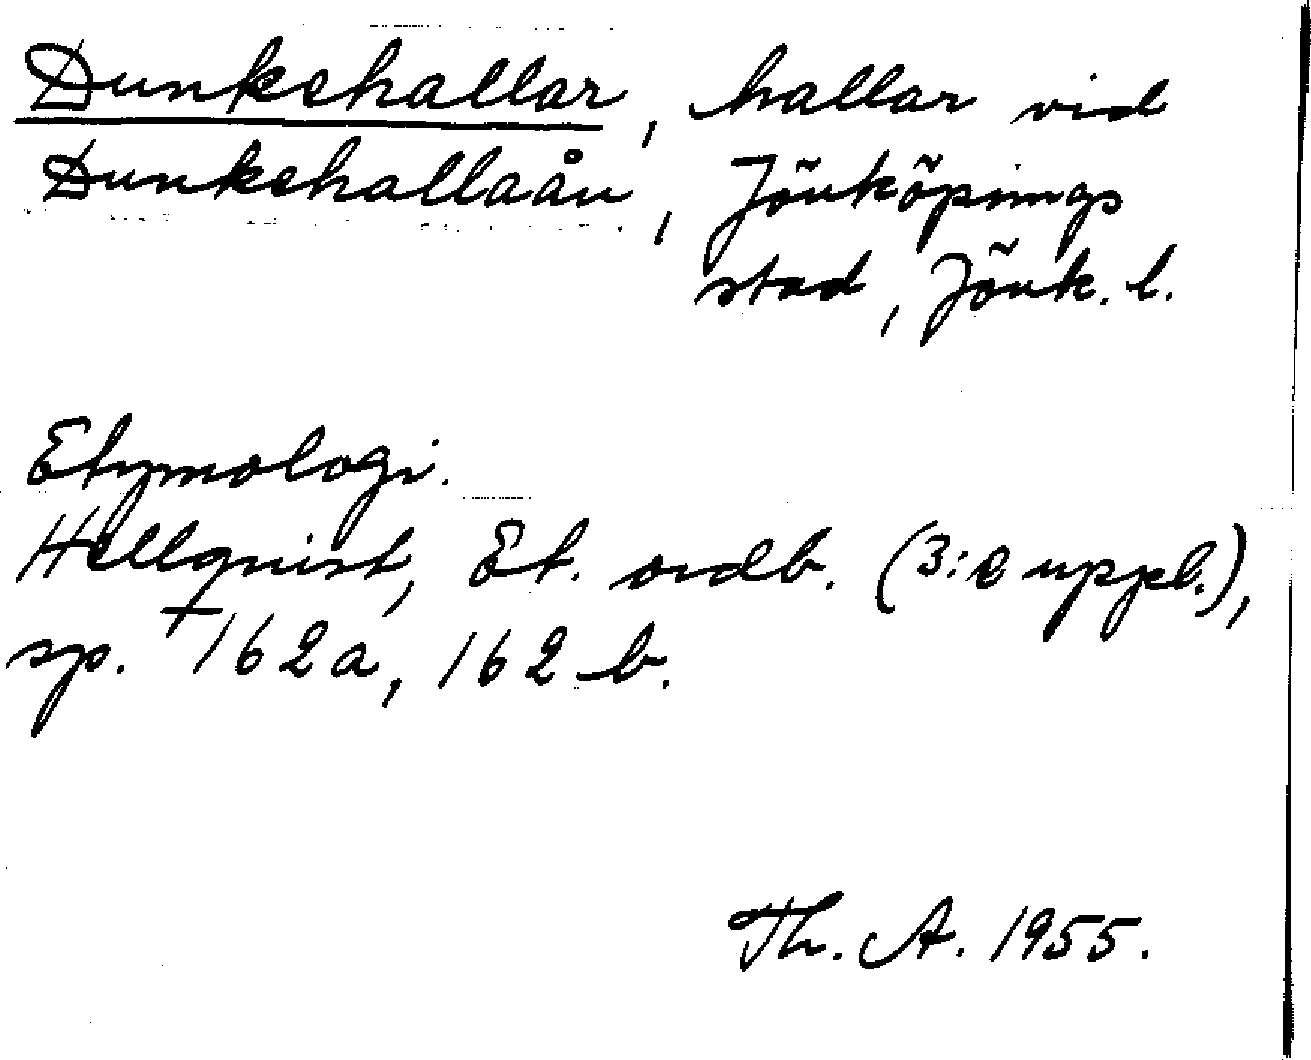 Dunkehallar, hallar vid
Dunkehallaån, Jönköpings
stad, Jönk. l.
Etymologi.
Hellquist, Et. ordb. (3:e uppl.),
sp. 162a, 162b.
Th. A. 1955.